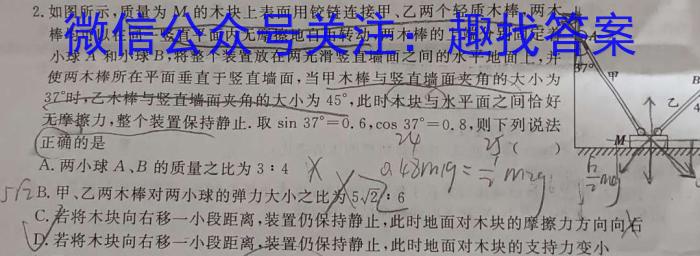 2. 如图所示,质量为 M 的木块上表面用铰链连接甲、乙两个轻质木棒,两木
微信公众号关注:趣找答案
小球 A 和小球 B,将整个装置放在两光滑竖直墙面之间的水平地面上,并
使两木棒所在平面垂直于竖直墙面,当甲木棒与竖直墙面夹角的大小为
37°时,乙木棒与竖直墙面夹角的大小为 45°,此时木块与水平面之间恰好
无摩擦力,整个装置保持静止.取 sin 37°=0.6,cos 37°=0.8,则下列说法
正确的是 ( )
A. 两小球 A、B 的质量之比为 3∶4
B. 甲、乙两木棒对两小球的弹力大小之比为 5√2∶6
C. 若将木块向右移一小段距离,装置仍保持静止,此时地面对木块的摩擦力方向向右
D. 若将木块向右移一小段距离,装置仍保持静止,此时地面对木块的支持力变小
A
37°
甲
乙
B
M
24
25
5√2